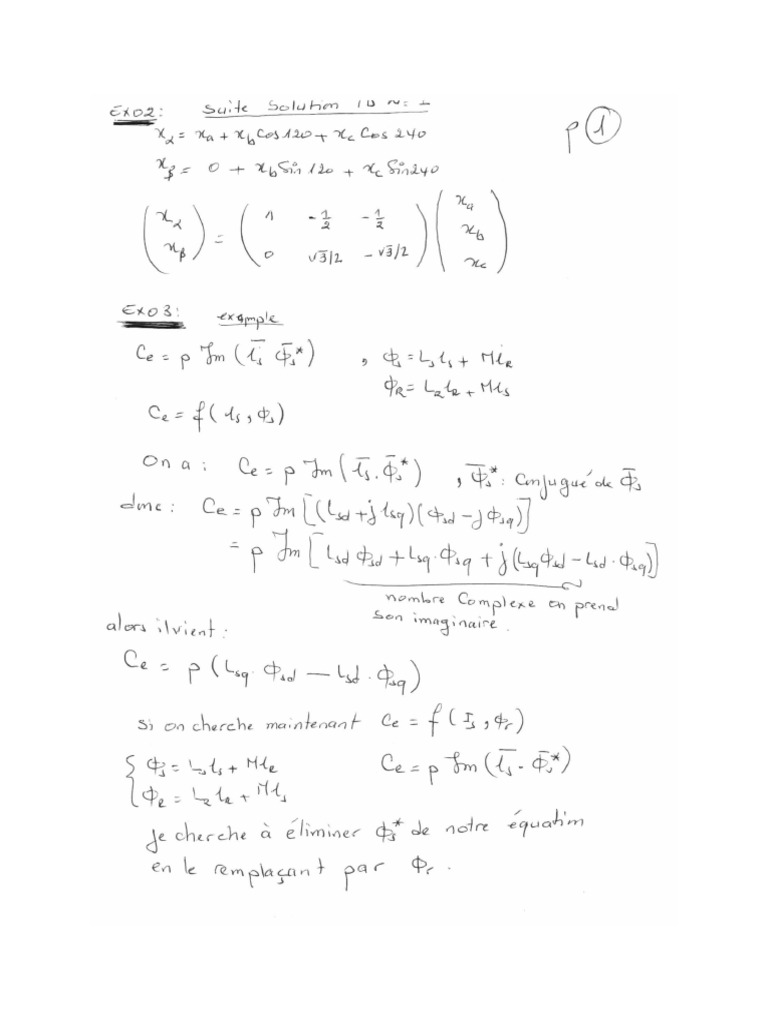 EXO2: Suite Solution TD N: 1
p ①
x_α = x_a + x_b Cos 120 + x_c Cos 240
x_β = 0 + x_b Sin 120 + x_c Sin 240
(x_α x_β) = (1 -1/2 -1/2 0 √3/2 -√3/2) (x_a x_b x_c)
EXO3: example
Ce = p Im (īs Φ̄s*) , Φs = Ls is + M iR
ΦR = LR iR + M is
Ce = f(is, Φs)
On a : Ce = p Im (īs . Φ̄s*) , Φ̄s* : Conjugué de Φ̄s
donc : Ce = p Im [(isd + j isq)(Φsd - j Φsq)]
= p Im [isd Φsd + isq . Φsq + j (isq Φsd - isd . Φsq)]
nombre Complexe on prend
son imaginaire.
alors il vient :
Ce = p (isq . Φsd — isd . Φsq)
si on cherche maintenant Ce = f(Is, Φr)
{ Φs = Ls is + M iR Ce = p Im (īs - Φ̄s*)
ΦR = LR iR + M is
je cherche à éliminer Φs* de notre équation
en le remplaçant par Φr.